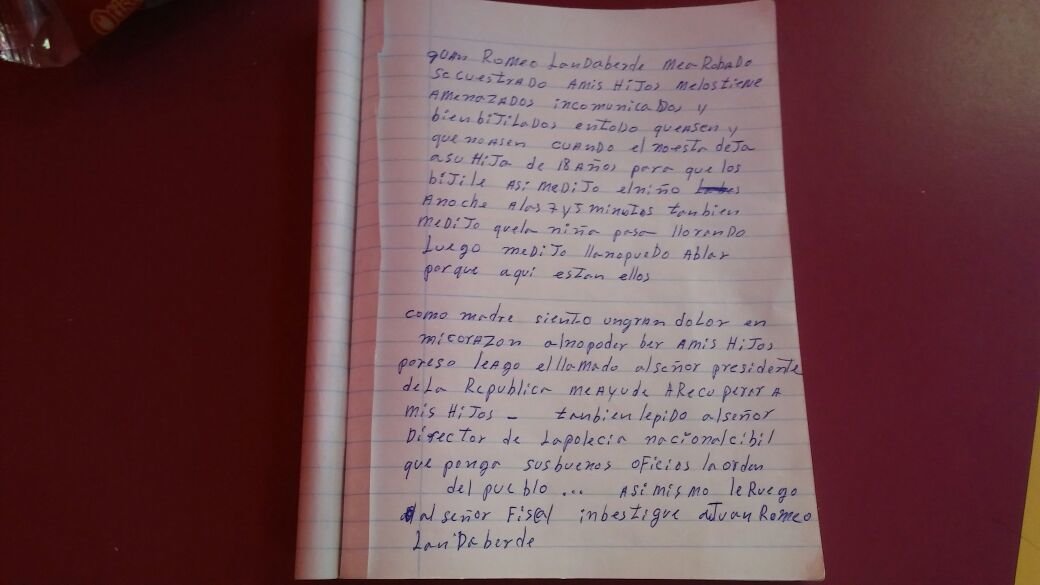 quan Romeo LanDaberde mea RobaDo
secuestrADO AMis HiJos melostiene
AmenAZADOS incomunicaDos y
bienbiJiLaDos entoDo queAsen y
que noAsen CUANDO el noesta deJa
asu HiJa de 18 AÑos para que los
biJile Asi meDiJo elniño
Anoche Alas 7 y 5 minutos tanbien
MeDiJo quela niña pasa lloranDo
Luego meDiJo llanopueDo Ablar
porque aqui estan ellos
como madre siento ungran doLor en
micorAZon alnopoder ber AMis HiJos
poreso leAgo elllamado alseñor presidente
deLa Republica meAyude ARecuperar A
mis HiJos - tanbien lepiDo alseñor
Director de Lapolecia nacionalcibil
que ponga susbuenos oficios laorden
del pueblo ... Asi mismo leRuego
al señor Fiscal inbestigue aJuan Romeo
LanDaberde